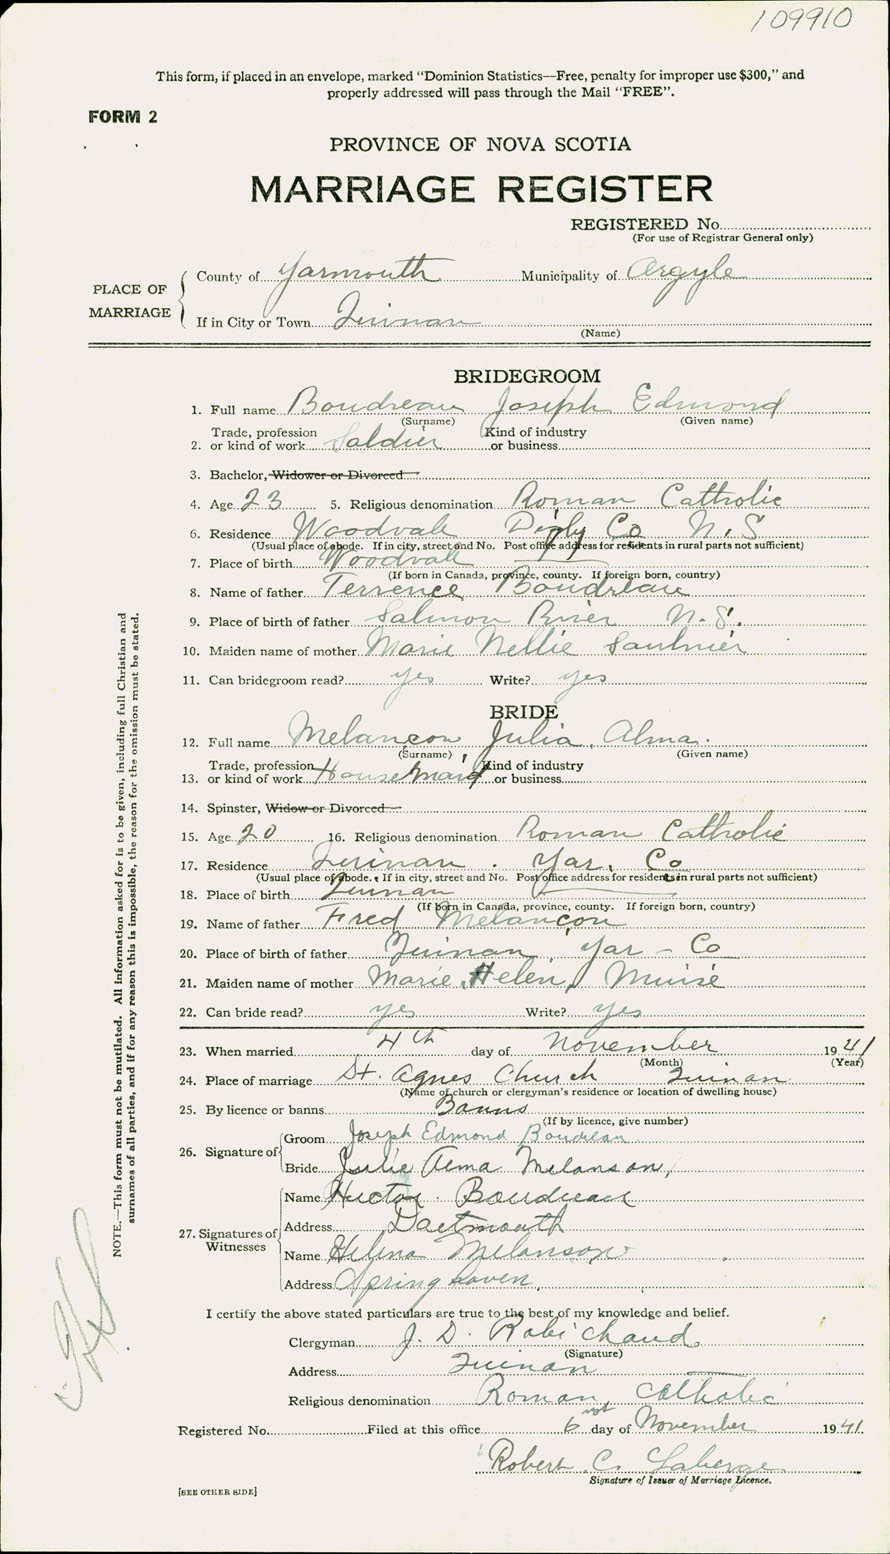 109910
This form, if placed in an envelope, marked "Dominion Statistics—Free, penalty for improper use $300," and
properly addressed will pass through the Mail "FREE".
FORM 2
PROVINCE OF NOVA SCOTIA
MARRIAGE REGISTER
REGISTERED No.
(For use of Registrar General only)
PLACE OF MARRIAGE
County of Yarmouth Municipality of Argyle
If in City or Town Quinan
(Name)
BRIDEGROOM
1. Full name Boudreau Joseph Edmond
(Surname) (Given name)
2. Trade, profession or kind of work Soldier Kind of industry or business
3. Bachelor, Widower or Divorced
4. Age 23 5. Religious denomination Roman Catholic
6. Residence Woodvale Digby Co N.S
(Usual place of abode. If in city, street and No. Post office address for residents in rural parts not sufficient)
7. Place of birth Woodvale
(If born in Canada, province, county. If foreign born, country)
8. Name of father Terrence Boudreau
9. Place of birth of father Salmon River N.S.
10. Maiden name of mother Marie Nellie Saulnier
11. Can bridegroom read? yes Write? yes
BRIDE
12. Full name Melancon Julia Alma.
(Surname) (Given name)
13. Trade, profession or kind of work House Maid Kind of industry or business
14. Spinster, Widow or Divorced
15. Age 20 16. Religious denomination Roman Catholic
17. Residence Quinan. Yar. Co
(Usual place of abode. If in city, street and No. Post office address for residents in rural parts not sufficient)
18. Place of birth Quinan
(If born in Canada, province, county. If foreign born, country)
19. Name of father Fred Melancon
20. Place of birth of father Quinan, Yar - Co
21. Maiden name of mother Marie Helen Muise
22. Can bride read? yes Write? yes
23. When married 4th day of November 1941
(Month) (Year)
24. Place of marriage St. Agnes Church Quinan
(Name of church or clergyman's residence or location of dwelling house)
25. By licence or banns Banns
(If by licence, give number)
26. Signature of
Groom Joseph Edmond Boudreau
Bride Julie Alma Melanson,
27. Signatures of Witnesses
Name Hector Boudreau
Address Dartmouth
Name Helena Melanson
Address Springhaven,
I certify the above stated particulars are true to the best of my knowledge and belief.
Clergyman J. D. Robichaud
(Signature)
Address Quinan
Religious denomination Roman Catholic
Registered No. Filed at this office 6 day of November 1941
Robert C. Laberge
Signature of Issuer of Marriage Licence.
[SEE OTHER SIDE]
NOTE.—This form must not be mutilated. All information asked for is to be given, including full Christian and
surnames of all parties, and if for any reason this is impossible, the reason for the omission must be stated.